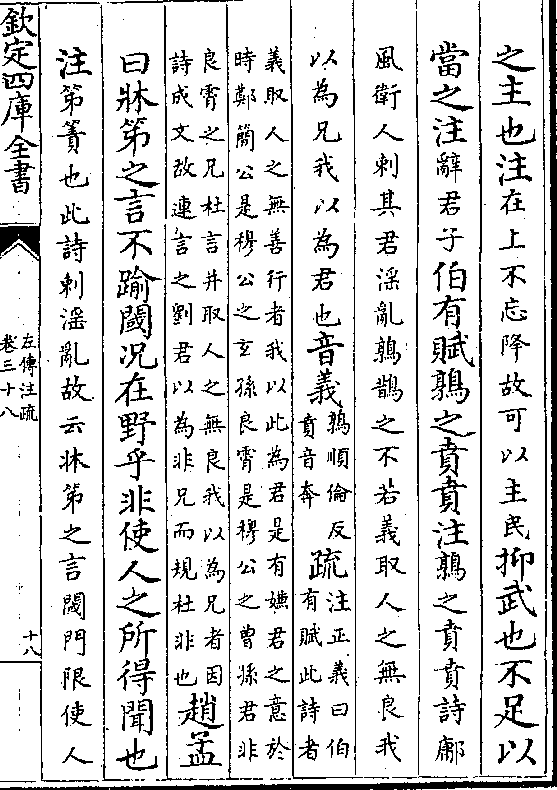 之主也注在上不忘降故可以主民抑武也不足以
當之注辭君子伯有賦鶉之賁賁注鶉之賁賁詩鄘
風衛人刺其君淫亂鶉鵲之不若義取人之無良我
以為兄我以為君也音義鶉順倫反
賁音奔疏注正義曰伯
有賦此詩者
義取人之無善行者我以此為君是有嫌君之意於
時鄭簡公是穆公之玄孫良霄是穆公之曾孫君非
良霄之兄杜言并取人之無良我以為兄者因
詩成文故連言之劉君以為非兄而規杜非也趙孟
曰牀笫之言不踰閾况在野乎非使人之所得聞也
注笫簀也此詩刺淫亂故云牀笫之言閾門限使人
欽定四庫全書
左傳注疏
卷三十八
十八